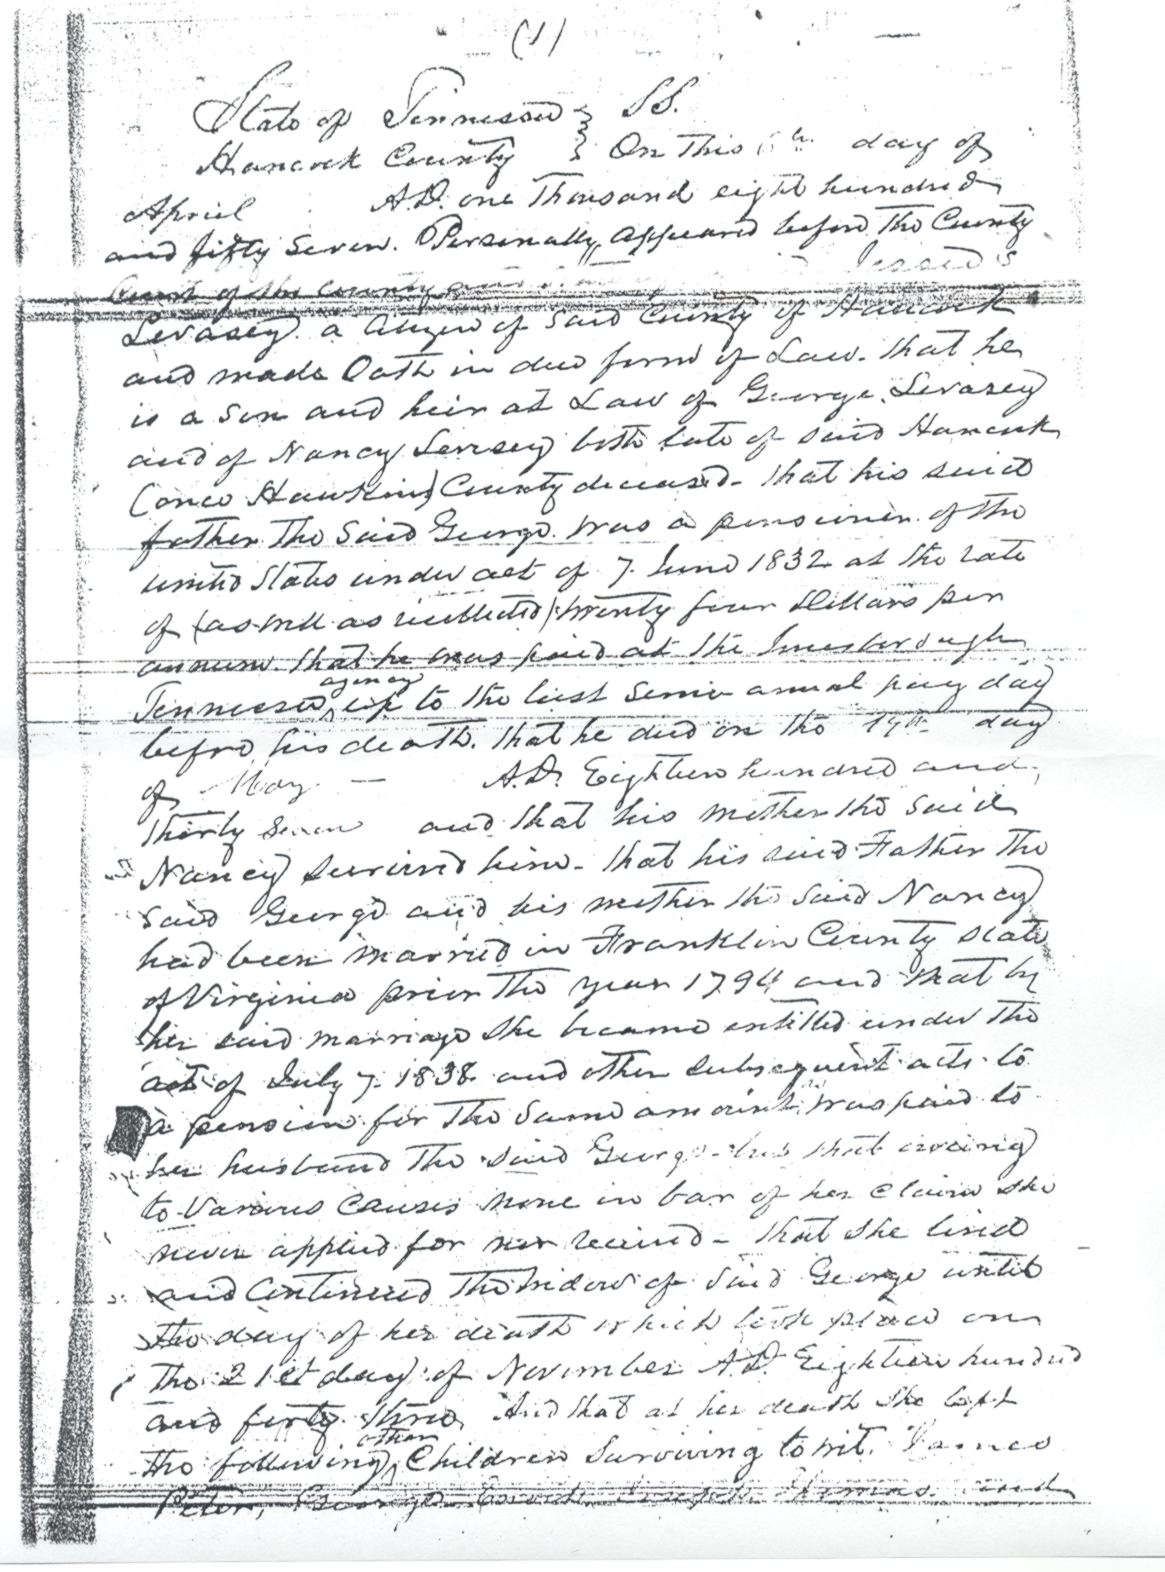 (1)
State of Tennessee } SS.
Hancock County } On this day of
April A.D. one Thousand eight hundred
and fifty Seven. Personally, appeared before The County
Court of the county and Jesse
Levasey a Citizen of Said County of Hancock
and made Oath in due form of Law. That he
is a Son and heir at Law of George Levasey
and of Nancy Levasey both late of said Hancock
(once Hawkins) County deceased - That his said
father The Said George was a pensioner of the
united States under act of 7. June 1832 at the rate
of (as well as recollected) twenty four Dollars per
annum that he was paid at the Jonesborough
Tennessee, agency up to the last Semi annual pay day
before his death. That he died on the 19th day
of May — A.D. Eighteen hundred and,
Thirty Seven and that his mother the said
Nancy Survived him - That his said Father The
said George and his mother the Said Nancy
had been married in Franklin County State
of Virginia prior The year 1794 and that by
her said marriage She became entitled under The
act of July 7. 1838 and other Subsequent acts to
a pension for The Same amount was paid to
her husband The said George - but that owing
to Various Causes none in bar of her claim She
never applied for nor received - That She lived
and Continued The Widow of Said George until
the day of her death which took place on
The 21st day of November A.D. Eighteen hundred
and forty three, And that at her death She left
The following, other Children Surviving to wit. James
Peter, George Joseph Thomas and